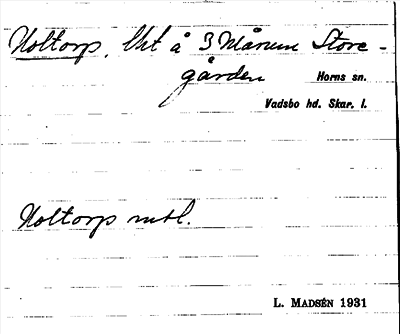 Noltorp, Lht å 3 Månum Store-
gården Horns sn.
Vadsbo hd. Skar. l.
Noltorp mtl.
L. MADSÉN 1931